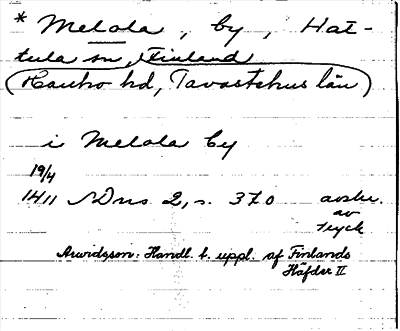 * Melola, by, Hat-
tula sn, Finland
(Hauho hd, Tavastehus län)
i Melola by
19/4
1411 SDns 2, s. 370 avskr.
av
tryck
Arwidsson: Handl. t. uppl. af Finlands
Häfder II